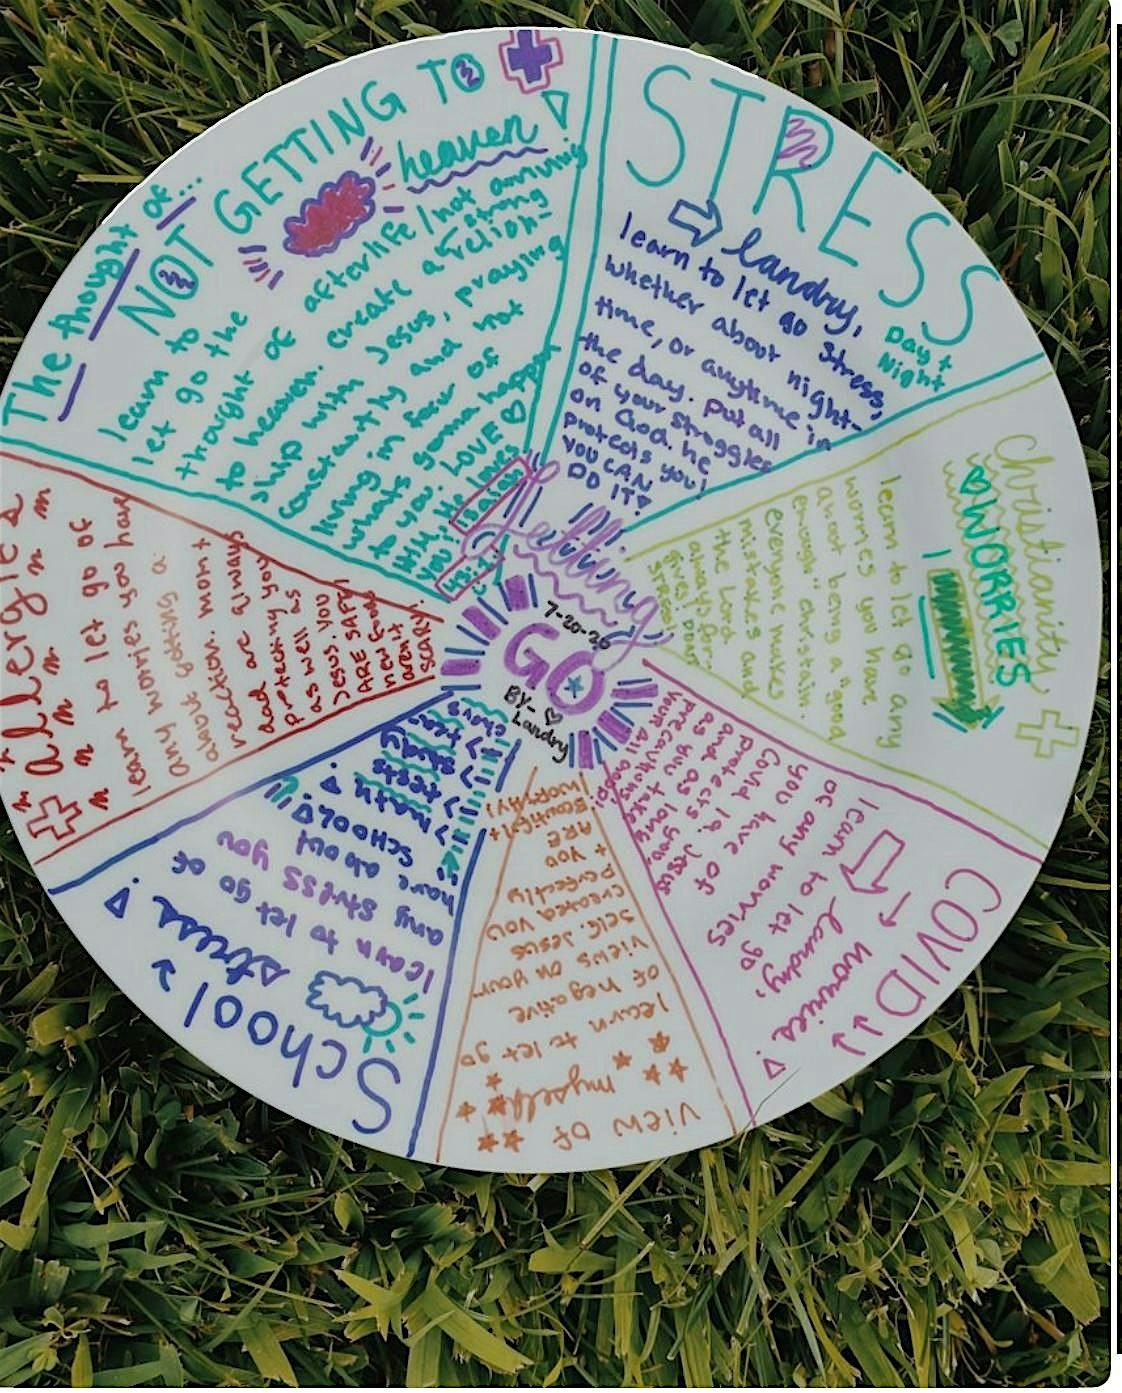 Letting
7-20-20
GO
BY- ♡
Landry
STRESS
Day +
Night
landry,
learn to let go stress,
whether about night-
time, or anytime in
the day. put all
of your struggles
on God. he
protects you!
YOU CAN
DO IT!
Christianity
WORRIES
learn to let go any
worries you have
about being a "good
enough" christain.
everyone makes
mistakes and
the Lord
always for-
gives! Don't
STRESS!
COVID ↓↓
→ worries!
landry,
learn to let go
of any worries
you have of
Covid 19. Jesus
protects you.
and as long
as you take
precautions,
your all
good!
view of
myself
learn to let go
of negative
views on your
self. Jesus
created you
perfectly
+ YOU
ARE
Beautiful +
WORTHY!
School
stress!
learn to let go of
any stress you
have about
SCHOOL!
> math
> tests
> study
> tea-
chers
allergies
learn to let go of
any worries you have
about getting a
reaction. mom +
dad are always
protecting you
as well as
Jesus. YOU
ARE SAFE!
new foods
aren't
scary!
The thought of...
NOT GETTING TO
heaven!
learn to
let go the
thought of
afterlife/not arriving
to heaven. create a strong
relation-
ship with Jesus, praying
constantly and not
living in fear of
whats gonna happen
to you. LOVE